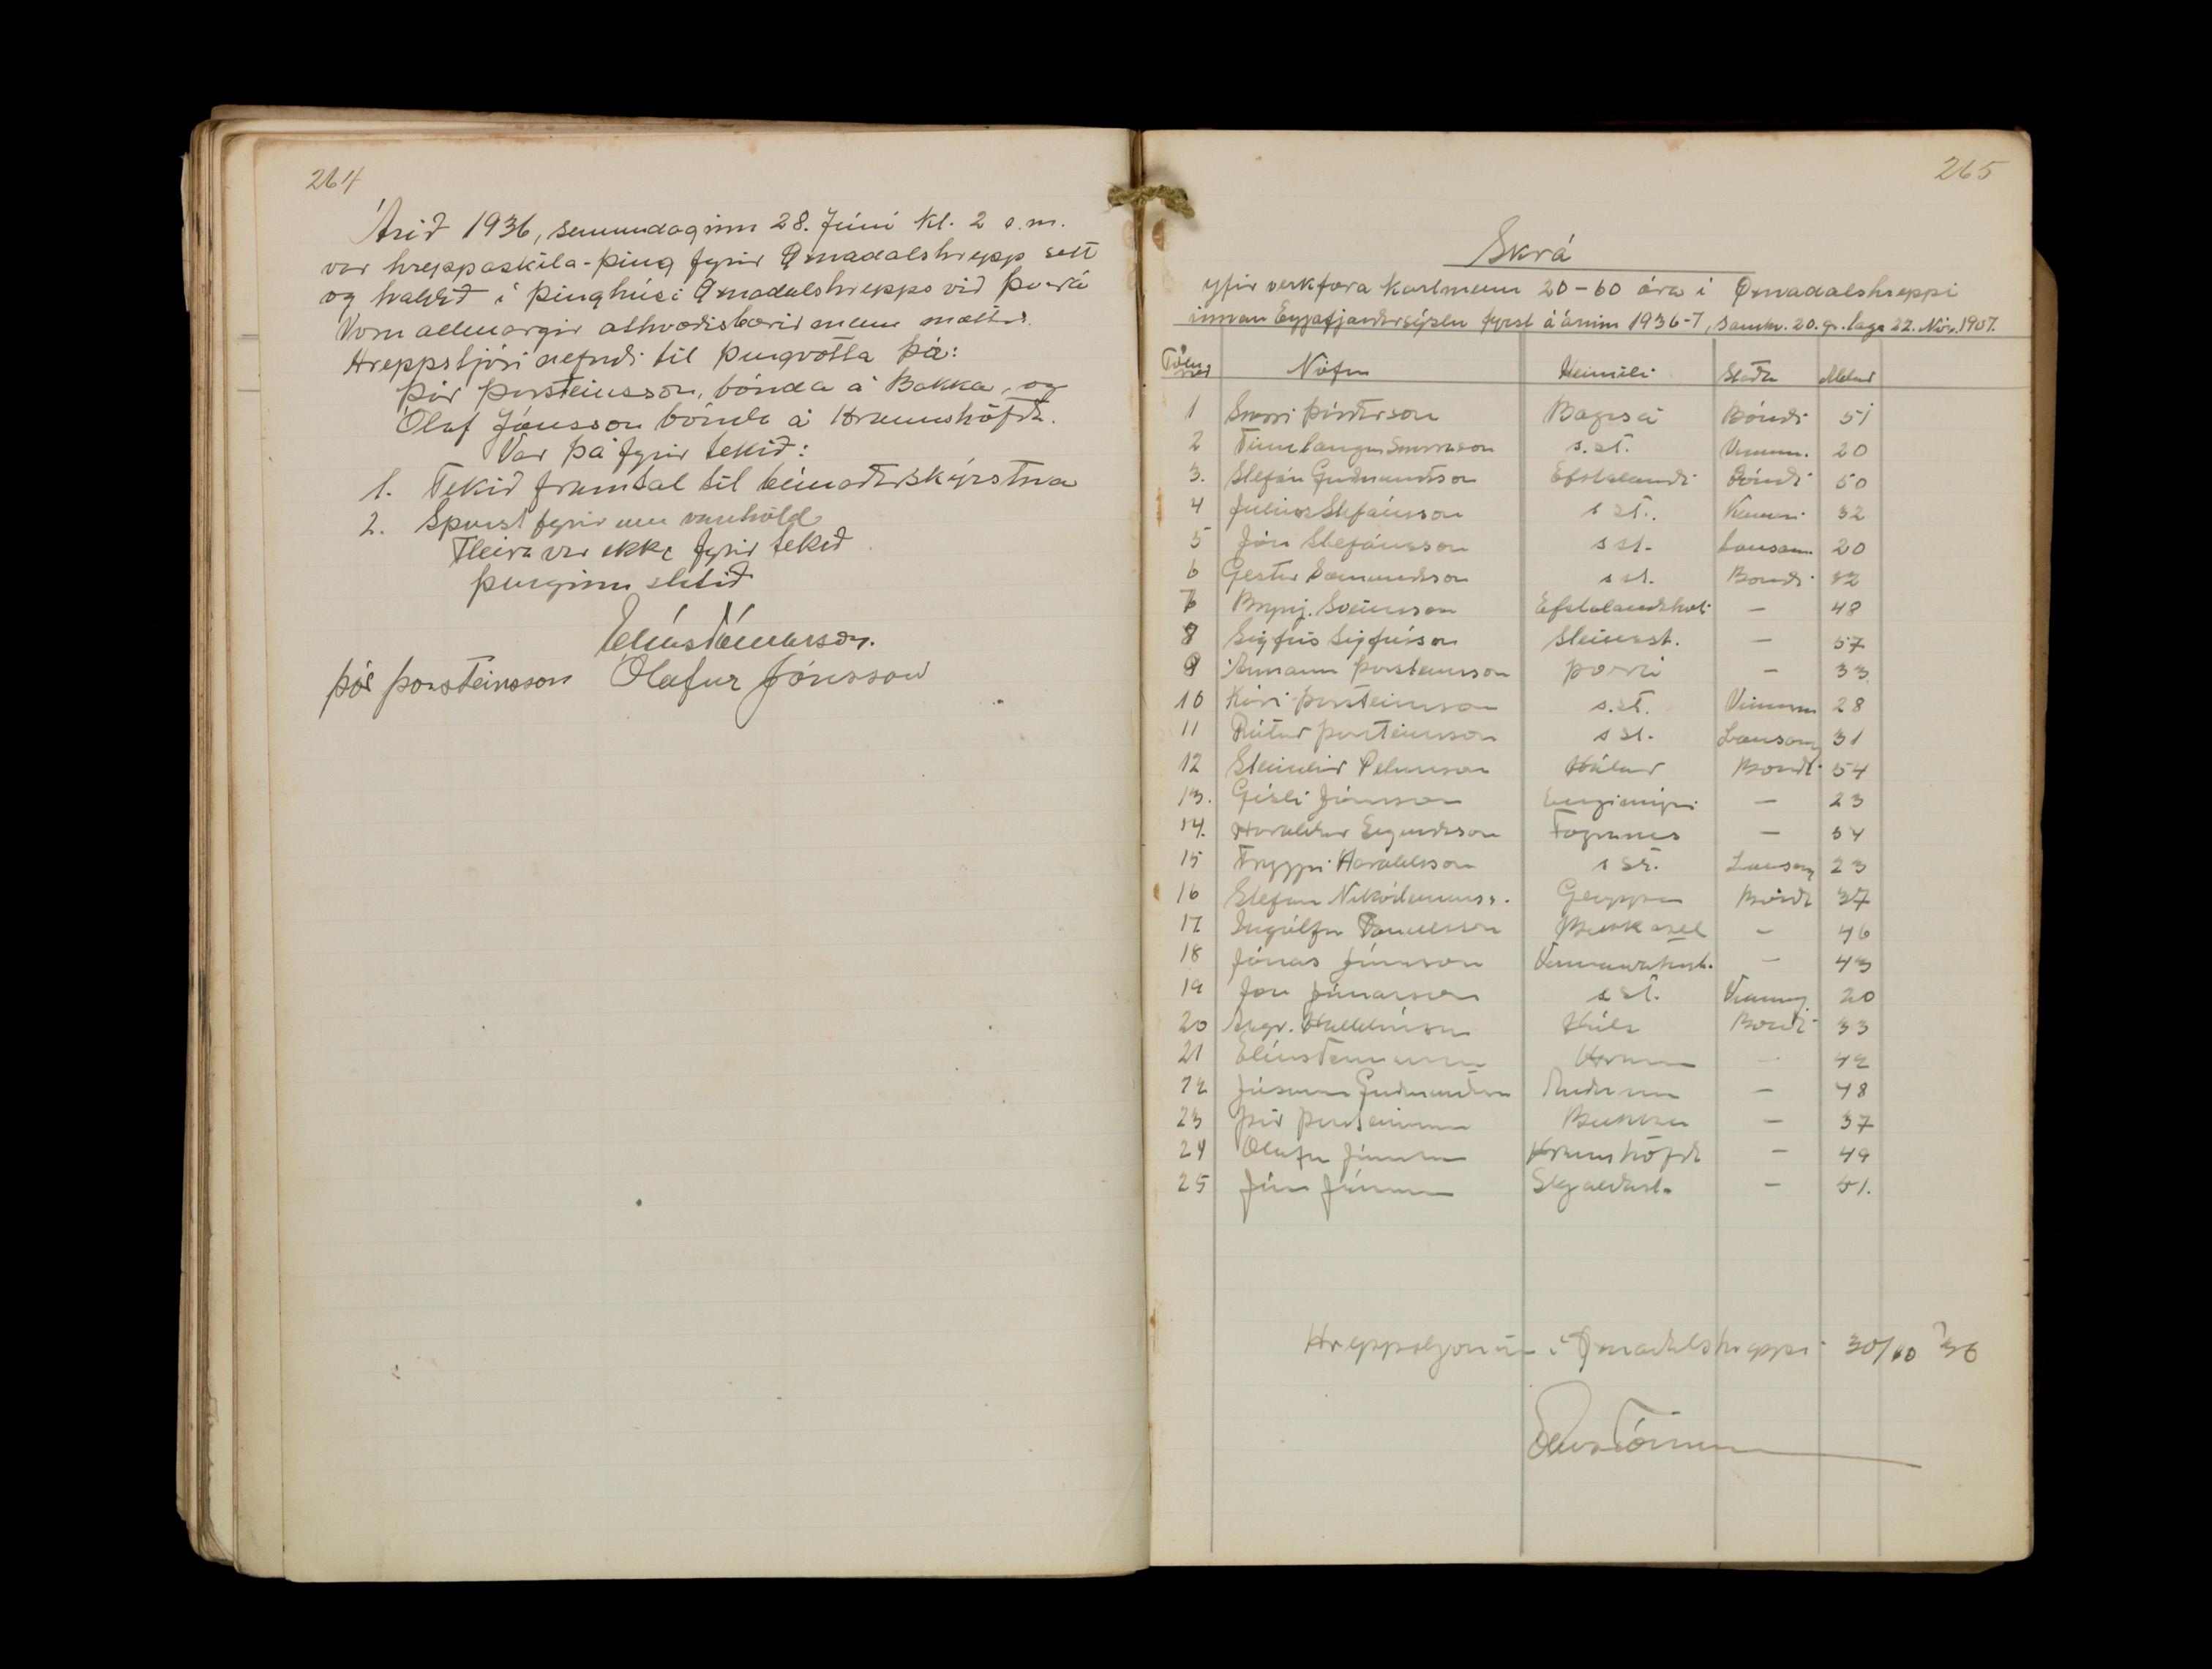 264
Árið 1936, sunnudaginn 28. Júni kl. 2 e.m.
var hreppaskila-þing fyrir Øxnadalshrepp sett
og haldið í þinghúsi Øxnadalshrepps við Þverá
Voru allmargir atkvæðisbærir menn mættir.
Hreppstjóri nefndi til þingvotta þá:
Þór Þorsteinsson, bónda á Bakka, og
Ólaf Jónsson bónda á Hraunshöfða.
Var þá fyrir tekið:
1. Tekið framtal til búnaðarskýrslna
2. Spurst fyrir um vanhöld
Fleira var ekki fyrir tekið
þinginu slitið
Elías Tómasson.
Þór Þorsteinsson Ólafur Jónsson
265
Skrá
yfir verkfæra karlmenn 20-60 ára í Øxnadalshreppi
innan Eyjafjarðarsýslu fyrst á árinu 1936-7, samkv. 20. gr. laga 22. Nóv. 1907.
Nöfn Heimili Staða Aldur
1 Snorri Þórðarson Bægisá Bóndi 51
2 Finnlaugur Snorrason s.st. Vinnum. 20
3. Stefán Guðmundsson Efstalandi Bóndi 50
4 Júlíus Stefánsson s st. 32
5 Jón Stefánsson s st. Lausam. 20
6 Gestur Sæmundsson s st. Bóndi
7 Brynj. Sveinsson Efstalandskoti — 48
8 Sigfús Sigfússon Steinsst. — 57
9 Ármann Þorsteinsson Þverá — 33
10 Kári Þorsteinsson s.st. Vinnum 28
11 Rútur Þorsteinsson s st. Lausam 31
12 Bóndi 54
13. Gísli Jónsson Engimýri — 23
14. Haraldur Fagranes — 54
15 Tryggvi Haraldsson s st. Lausam 23
16 Stefán Nikódemuss. Bóndi 37
17 Ingólfur — 46
18 Jónas Jónsson — 43
19 Jón Jónasson s st. Vinnum 20
20 Hólar Bóndi 33
21 Elías Tómasson Hraun — 42
22 Guðmundsson Auðnum — 48
23 Þór Þorsteinsson Bakka — 37
24 Ólafur Jónsson Hraunshöfða — 49
25 Jón Jónsson Skjaldarst. — 51.
Hreppstjórinn í Øxnadalshreppi 30/10 '36
Elías Tómasson